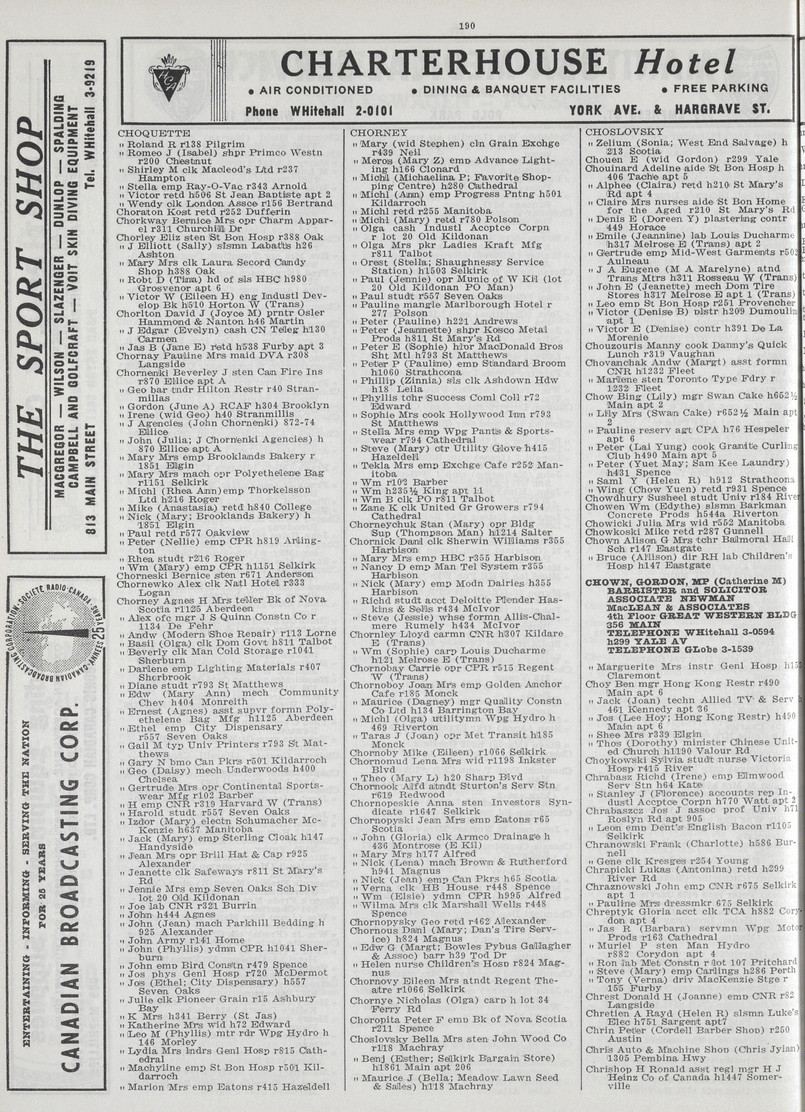 190
THE SPORT SHOP
MACGREGOR — WILSON — SLAZENGER — DUNLOP — SPALDING
CAMPBELL AND GOLFCRAFT — VOIT SKIN DIVING EQUIPMENT
813 MAIN STREET Tel. WHitehall 3-9219
CHARTERHOUSE Hotel
• AIR CONDITIONED • DINING & BANQUET FACILITIES • FREE PARKING
Phone WHitehall 2-0101 YORK AVE. & HARGRAVE ST.
CANADIAN BROADCASTING CORPORATION
SOCIETE RADIO-CANADA
25
ENTERTAINING - INFORMING - SERVING THE NATION
FOR 25 YEARS
CANADIAN BROADCASTING CORP.
CHOQUETTE
" Roland R r138 Pilgrim
" Romeo J (Isabel) shpr Primco Westn
r200 Chestnut
" Shirley M clk Macleod's Ltd r237
Hampton
" Stella emp Ray-O-Vac r343 Arnold
" Victor retd h506 St Jean Baptiste apt 2
" Wendy clk London Assce r156 Bertrand
Choraton Kost retd r252 Dufferin
Chorkway Bernice Mrs opr Charm Appar-
el r311 Churchill Dr
Chorley Eliz sten St Bon Hosp r388 Oak
" J Elliott (Sally) slsmn Labatts h26
Ashton
" Mary Mrs clk Laura Secord Candy
Shop h388 Oak
" Robt D (Tina) hd of sls HBC h980
Grosvenor apt 6
" Victor W (Eileen H) eng Industl Dev-
elop Bk h510 Horton W (Trans)
Chorlton David J (Joyce M) prntr Osler
Hammond & Nanton h46 Martin
" J Edgar (Evelyn) cash CN Teleg h130
Carmen
" Jas B (Jane E) retd h538 Furby apt 3
Chornay Pauline Mrs maid DVA r308
Langside
Chornenki Beverley J sten Can Fire Ins
r870 Ellice apt A
" Geo bar tndr Hilton Restr r40 Stran-
millas
" Gordon (June A) RCAF h304 Brooklyn
" Irene (wid Geo) h40 Stranmillis
" J Agencies (John Chornenki) 872-74
Ellice
" John (Julia; J Chornenki Agencies) h
870 Ellice apt A
" Mary Emp Mrs Brooklands Bakery r
1851 Elgin
" Mary Mrs mach opr Polyethelene Bag
r1151 Selkirk
" Michl (Rhea Ann) emp Thorkelsson
Ltd h216 Roger
" Mike (Anastasia) retd h840 College
" Nick (Mary; Brooklands Bakery) h
1851 Elgin
" Paul retd r577 Oakview
" Peter (Nellie) emp CPR h819 Arling-
ton
" Rhea studt r216 Roger
" Wm (Mary) emp CPR h1151 Selkirk
Chorneski Bernice sten r671 Anderson
Chornewko Alex clk Natl Hotel r333
Logan
Chorney Agnes H Mrs teller Bk of Nova
Scotia r1125 Aberdeen
" Alex ofc mgr J S Quinn Constn Co r
1134 De Fehr
" Andw (Modern Shoe Repair) r113 Lorne
" Basil (Olga) clk Dom Govt h811 Talbot
" Beverly clk Man Cold Storage r1041
Sherburn
" Darlene emp Lighting Materials r407
Sherbrook
" Diane studt r793 St Matthews
" Edw (Mary Ann) mech Community
Chev h404 Monreith
" Ernest (Agnes) asst supvr formn Poly-
ethelene Bag Mfg h1125 Aberdeen
" Ethel emp City Dispensary
r557 Seven Oaks
" Gail M typ Univ Printers r793 St Mat-
thews
" Gary N bmo Can Pkrs r501 Kildarroch
" Geo (Daisy) mech Underwoods h400
Chelsea
" Gertrude Mrs opr Continental Sports-
wear Mfg r102 Barber
" H emp CNR r319 Harvard W (Trans)
" Harold studt r557 Seven Oaks
" Izdor (Mary) electn Schumacher Mc-
Kenzie h637 Manitoba
" Jack (Mary) emp Sterling Cloak h147
Handyside
" Jean Mrs opr Brill Hat & Cap r925
Alexander
" Jeanette clk Safeways r811 St Mary's
Rd
" Jennie Mrs emp Seven Oaks Sch Div
lot 20 Old Kildonan
" Joe lab CNR r321 Burrin
" John h444 Agnes
" John (Jean) mach Parkhill Bedding h
925 Alexander
" John Army r141 Home
" John (Phyllis) ydmn CPR h1041 Sher-
burn
" John emp Bird Constn r479 Spence
" Jos phys Genl Hosp r720 McDermot
" Jos (Ethel; City Dispensary) h557
Seven Oaks
" Julie clk Pioneer Grain r15 Ashbury
Bay
" K Mrs h341 Berry (St Jas)
" Katherine Mrs wid h72 Edward
" Leo M (Phyllis) mtr rdr Wpg Hydro h
146 Morley
" Lydia Mrs lndrs Genl Hosp r815 Cath-
edral
" Machyline emp St Bon Hosp r501 Kil-
darroch
" Marion Mrs emp Eatons r415 Hazeldell
CHORNEY
" Mary (wid Stephen) cln Grain Exchge
r439 Neil
" Meros (Mary Z) emp Advance Light-
ing h166 Clonard
" Michl (Michaelina P; Favorite Shop-
ping Centre) h280 Cathedral
" Michl (Ann) emp Progress Pntng h501
Kildarroch
" Michl retd r255 Manitoba
" Michl (Mary) retd r780 Polson
" Olga cash Industl Accptce Corpn
r lot 20 Old Kildonan
" Olga Mrs pkr Ladies Kraft Mfg
r811 Talbot
" Orest (Stella; Shaughnessy Service
Station) h1503 Selkirk
" Paul (Jennie) opr Munic of W Kil (lot
20 Old Kildonan PO Man)
" Paul studt r557 Seven Oaks
" Pauline mangle Marlborough Hotel r
277 Polson
" Peter (Pauline) h221 Andrews
" Peter (Jeannette) shpr Kosco Metal
Prods h811 St Mary's Rd
" Peter E (Sophie) hlpr MacDonald Bros
Sht Mtl h793 St Matthews
" Peter P (Pauline) emp Standard Broom
h1060 Strathcona
" Phillip (Zinnia) sls clk Ashdown Hdw
h18 Leila
" Phyllis tchr Success Coml Coll r72
Edward
" Sophie Mrs cook Hollywood Inn r793
St Matthews
" Stella Mrs emp Wpg Pants & Sports-
wear r794 Cathedral
" Steve (Mary) ctr Utility Glove h415
Hazeldell
" Tekla Mrs emp Exchge Cafe r252 Man-
itoba
" Wm r102 Barber
" Wm h235½ King apt 11
" Wm B clk PO r811 Talbot
" Zane K clk United Gr Growers r794
Cathedral
Chorneychuk Stan (Mary) opr Bldg
Sup (Thompson Man) h1214 Salter
Chornick Danl clk Sherwin Williams r355
Harbison
" Mary Mrs emp HBC r355 Harbison
" Nancy D emp Man Tel System r355
Harbison
" Nick (Mary) emp Modn Dairies h355
Harbison
" Richd studt acct Deloitte Plender Has-
kins & Sells r434 McIvor
" Steve (Jessie) whse formn Allis-Chal-
mers Rumely h434 McIvor
Chornley Lloyd carmn CNR h307 Kildare
E (Trans)
" Wm (Sophie) carp Louis Ducharme
h121 Melrose E (Trans)
Chornobay Carrie opr CPR r515 Regent
W (Trans)
Chornoboy Joan Mrs emp Golden Anchor
Cafe r185 Monck
" Maurice (Dagney) mgr Quality Constn
Co Ltd h134 Barrington Bay
" Michl (Olga) utilitymn Wpg Hydro h
469 Riverton
" Taras J (Joan) opr Met Transit h185
Monck
Chornoby Mike (Eileen) r1066 Selkirk
Chornomud Lena Mrs wid r1198 Inkster
Blvd
" Theo (Mary L) h20 Sharp Blvd
Chornook Alfd atndt Sturton's Serv Stn
r619 Redwood
Chornopeskie Anna sten Investors Syn-
dicate r1647 Selkirk
Chornopyski Jean Mrs emp Eatons r65
Scotia
" John (Gloria) clk Armco Drainage h
436 Montrose (E Kil)
" Mary Mrs h177 Alfred
" Nick (Lena) mach Brown & Rutherford
h941 Magnus
" Nick (Jean) emp Can Pkrs h65 Scotia
" Verna clk HB House r448 Spence
" Wm (Elsie) ydmn CPR h995 Alfred
" Wilma Mrs clk Marshall Wells r448
Spence
Chornopysky Geo retd r462 Alexander
Chornous Danl (Mary; Dan's Tire Serv-
ice) h824 Magnus
" Edw G (Margt; Bowles Pybus Gallagher
& Assoc) barr h39 Tod Dr
" Helen nurse Children's Hosp r824 Mag-
nus
Chornovy Eileen Mrs atndt Regent The-
atre r1066 Selkirk
Chornye Nicholas (Olga) carp h lot 34
Ferry Rd
Choropita Peter F emp Bk of Nova Scotia
r211 Spence
Choslovsky Bella Mrs sten John Wood Co
r118 Machray
" Benj (Esther; Selkirk Bargain Store)
h1861 Main apt 206
" Maurice J (Bella; Meadow Lawn Seed
& Sales) h118 Machray
CHOSLOVSKY
" Zelium (Sonia; West End Salvage) h
213 Scotia
Chouen E (wid Gordon) r299 Yale
Chouinard Adeline aide St Bon Hosp h
406 Tache apt 5
" Alphee (Claira) retd h210 St Mary's
Rd apt 4
" Claire Mrs nurses aide St Bon Home
for the Aged r210 St Mary's Rd
" Denis E (Doreen Y) plastering contr
449 Horace
" Emile (Jeannine) lab Louis Ducharme
h317 Melrose E (Trans) apt 2
" Gertrude emp Mid-West Garments r502
Aulneau
" J A Eugene (M A Marelyne) atnd
Trans Mtrs h311 Rosseau W (Trans)
" John E (Jeanette) mech Dom Tire
Stores h317 Melrose E apt 1 (Trans)
" Leo emp St Bon Hosp r251 Provencher
" Victor (Denise B) plstr h209 Dumoulin
apt 1
" Victor E (Denise) contr h391 De La
Morenie
Chouzouris Manny cook Danny's Quick
Lunch r319 Vaughan
Chovanchak Andw (Margt) asst formn
CNR h1232 Fleet
" Marlene sten Toronto Type Fdry r
1232 Fleet
Chow Bing (Lily) mgr Swan Cake h652½
Main apt 2
" Lily Mrs (Swan Cake) r652½ Main apt
2
" Pauline reserv agt CPA h76 Hespeler
apt 6
" Peter (Lai Yung) cook Granite Curling
Club h490 Main apt 5
" Peter (Yuet May; Sam Kee Laundry)
h431 Spence
" Saml Y (Helen R) h912 Strathcona
" Wing (Chow Yuen) retd r931 Spence
Chowdhury Susheel studt Univ r184 River
Chowen Wm (Edythe) slsmn Barkman
Concrete Prods h544a Riverton
Chowicki Julia Mrs wid r552 Manitoba
Chowkoski Mike r287 Gunnell
Chown Alison G Mrs tchr Balmoral Hall
Sch r147 Eastgate
" Bruce (Allison) dir RH lab Children's
Hosp h147 Eastgate
CHOWN, GORDON, MP (Catherine M)
BARRISTER and SOLICITOR
ASSOCIATE NEWMAN
MacLEAN & ASSOCIATES
4th Floor GREAT WESTERN BLDG
356 MAIN
TELEPHONE WHitehall 3-0594
h299 YALE AV
TELEPHONE GLobe 3-1539
" Marguerite Mrs instr Genl Hosp
Claremont
Choy Ben mgr Hong Kong Restr r490
Main apt 6
" Jack (Joan) techn Allied TV & Serv h
461 Kennedy apt 36
" Jos (Lee Hoy; Hong Kong Restr) h490
Main apt 6
" Shee Mrs r339 Elgin
" Thos (Dorothy) minister Chinese Unit-
ed Church h1190 Valour Rd
Choykowski Sylvia studt nurse Victoria
Hosp r415 River
Chrabasz Richd (Irene) emp Elmwood
Serv Stn h64 Kate
" Stanley J (Florence) accounts rep In-
dustl Accptce Corpn h770 Watt apt 2
Chrabaszcz Jos J assoc prof Univ h71
Roslyn Rd apt 905
" Leon emp Dent's English Bacon r1105
Selkirk
Chranowski Frank (Charlotte) h586 Bur-
nell
" Gene clk Kresges r254 Young
Chrapicki Lukas (Antonina) retd h299
River Rd
Chraznowski John emp CNR r675 Selkirk
apt 1
" Pauline Mrs dressmkr 675 Selkirk
Chreptyk Gloria acct clk TCA h882 Cory-
don apt 4
" Jas R (Barbara) servmn Wpg Motor
Prods r163 Cathedral
" Muriel P sten Man Hydro
r882 Corydon apt 4
" Ron lab Met Constn r lot 107 Pritchard
" Steve (Mary) emp Carlings h286 Perth
" Tony (Verna) driv MacKenzie Stge r
155 Furby
Chrest Donald H (Joanne) emp CNR r82
Langside
Chretien A Rayd (Helen R) slsmn Luke's
Elec h751 Sargent apt7
Chrin Peter (Cordell Barber Shop) r250
Austin
Chris Auto & Machine Shop (Chris Jylan)
1305 Pembina Hwy
Chrishop H Ronald asst regl mgr H J
Heinz Co of Canada h1447 Somer-
ville